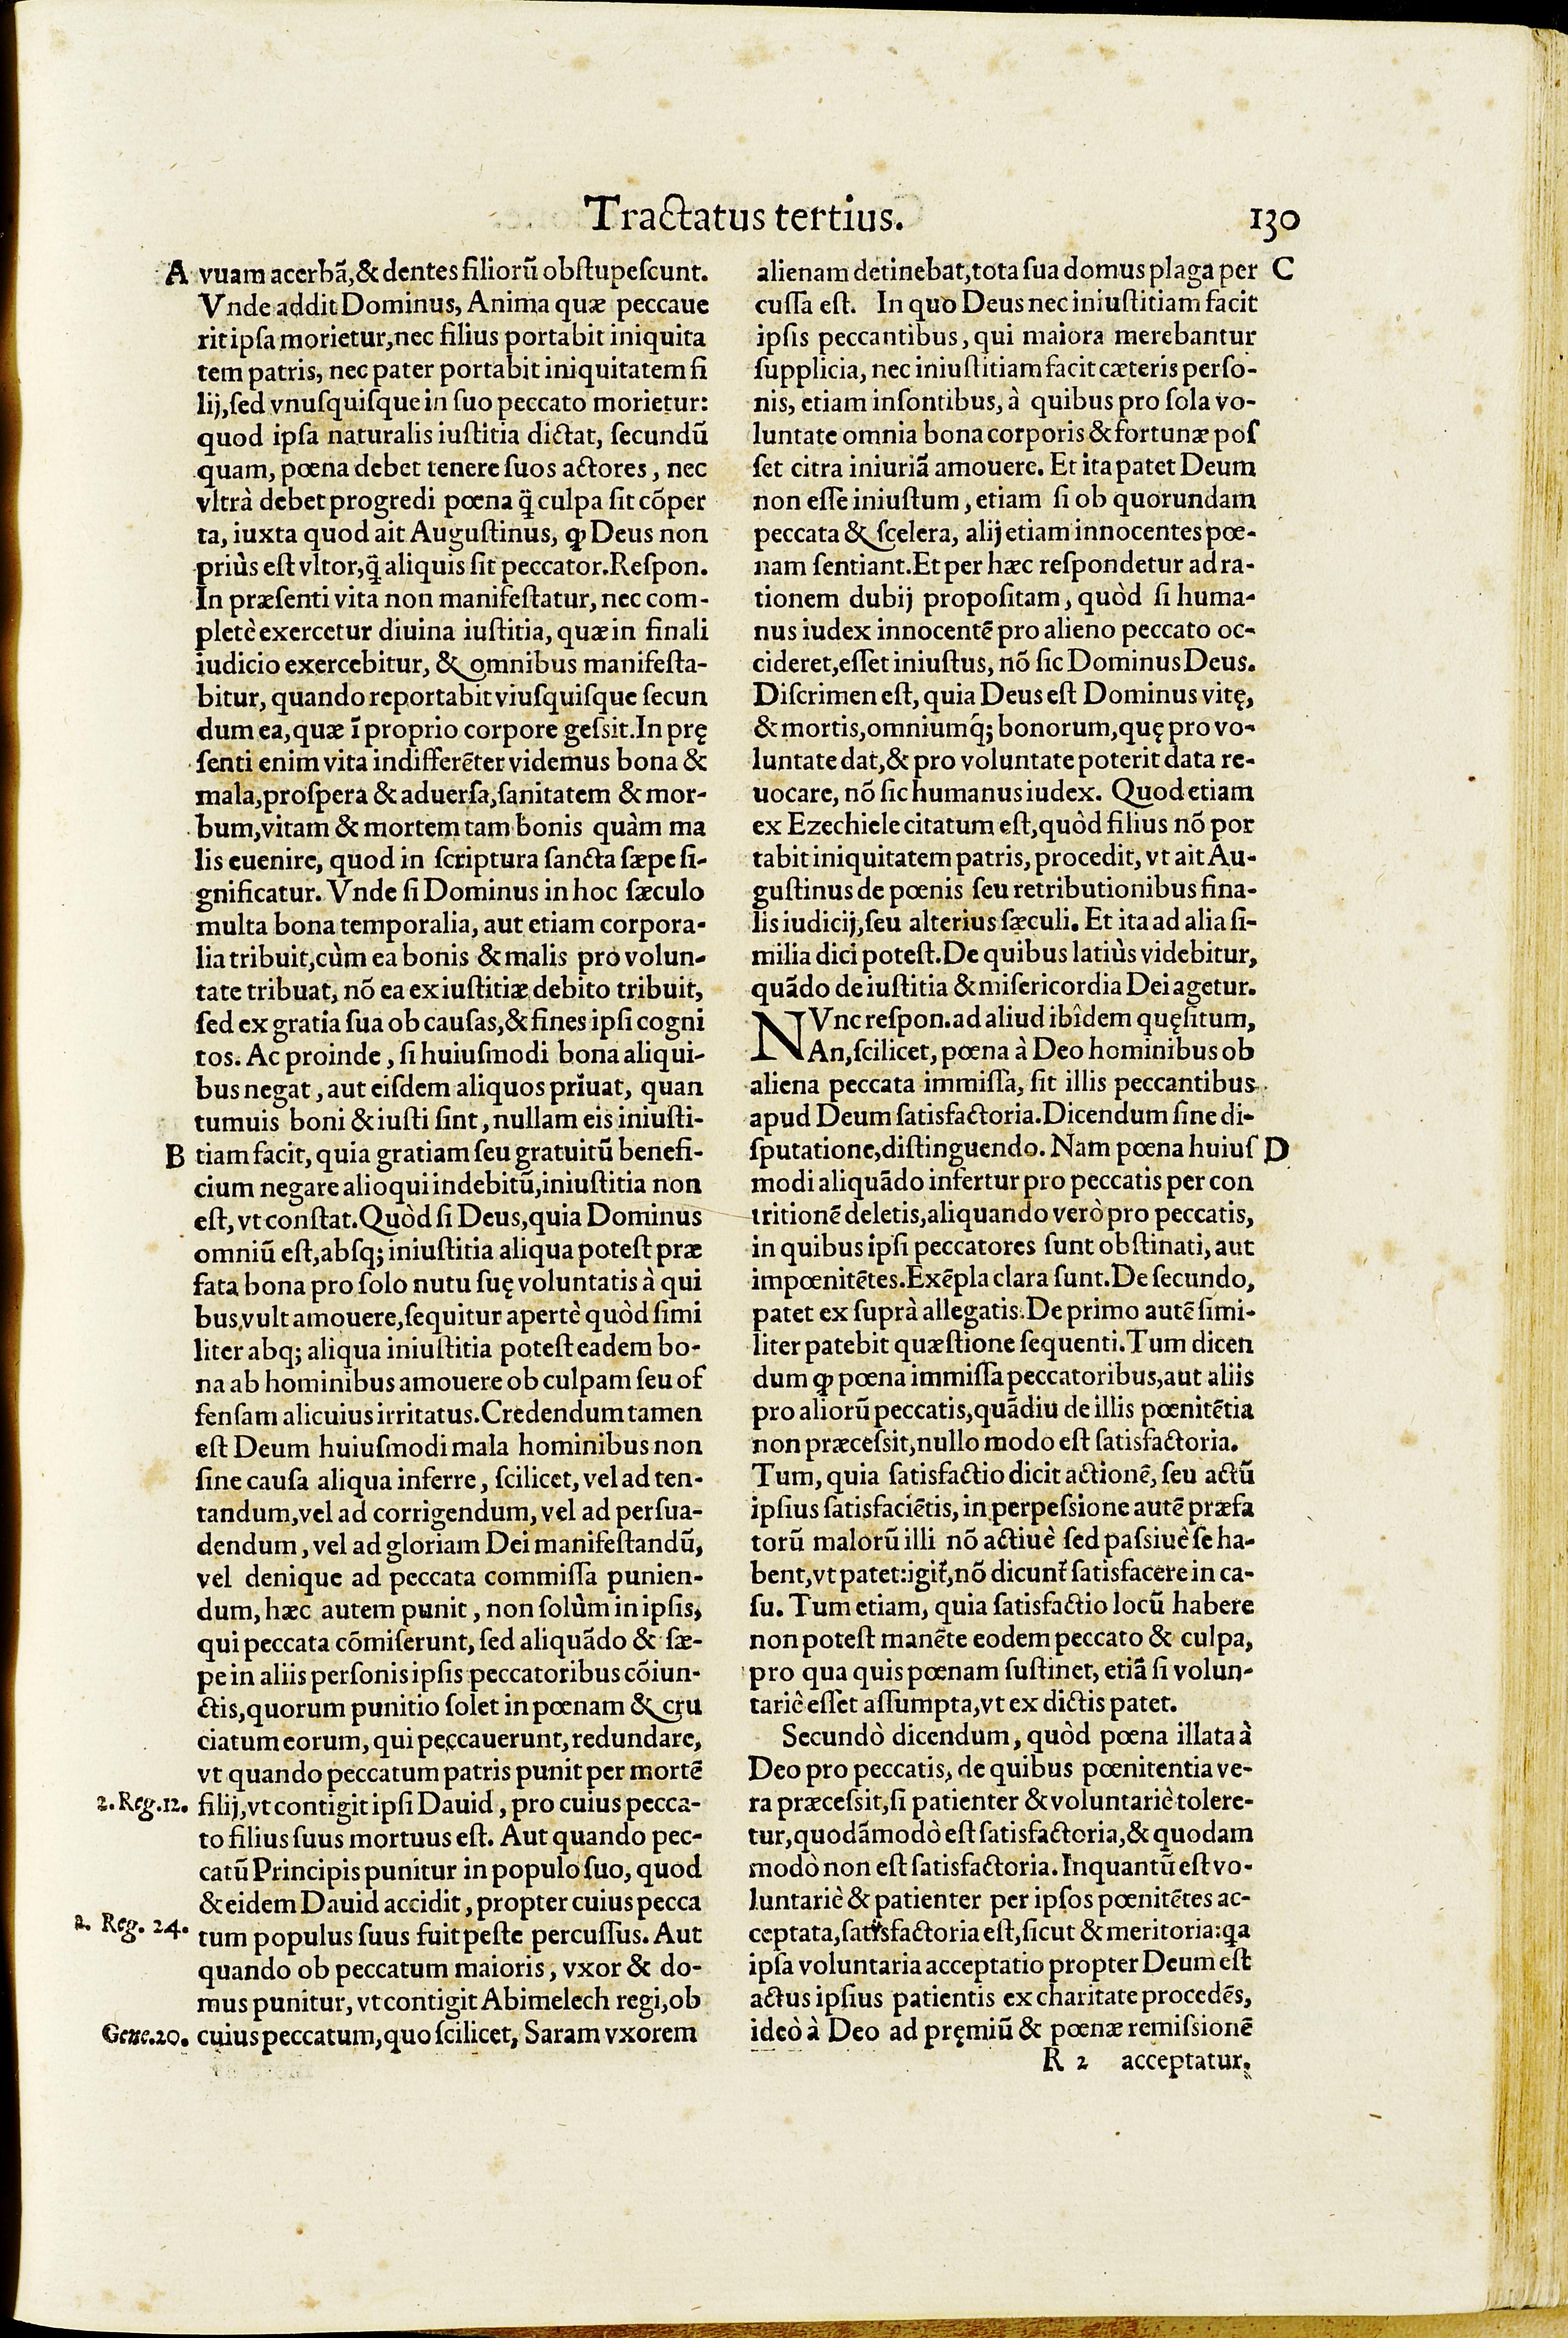 Tractatus tertius.
130
A
vuam acerbã, & dentes filiorũ obſtupeſcunt.
Vnde addit Dominus, Anima quæ peccaue
rit ipſa morietur, nec filius portabit iniquita
tem patris, nec pater portabit iniquitatem fi
lij, ſed vnuſquiſque in ſuo peccato morietur:
quod ipſa naturalis iuſtitia dictat, ſecundũ
quam, pœna debet tenere ſuos actores, nec
vltrà debet progredi pœna q̃ culpa ſit cõper
ta, iuxta quod ait Auguſtinus, ꝙ Deus non
priùs eſt vltor, q̃ aliquis ſit peccator. Reſpon.
In præſenti vita non manifeſtatur, nec com-
pletè exercetur diuina iuſtitia, quæ in finali
iudicio exercebitur, & omnibus manifeſta-
bitur, quando reportabit viuſquiſque ſecun
dum ea, quæ ĩ proprio corpore geſsit. In prę
ſenti enim vita indifferẽter videmus bona &
mala, proſpera & aduerſa, ſanitatem & mor-
bum, vitam & mortem tam bonis quàm ma
lis euenire, quod in ſcriptura ſancta ſæpe ſi-
gnificatur. Vnde ſi Dominus in hoc ſæculo
multa bona temporalia, aut etiam corpora-
lia tribuit, cùm ea bonis & malis pro volun-
tate tribuat, nõ ea ex iuſtitiæ debito tribuit,
ſed ex gratia ſua ob cauſas, & fines ipſi cogni
tos. Ac proinde, ſi huiuſmodi bona aliqui-
bus negat, aut eiſdem aliquos priuat, quan
tumuis boni & iuſti ſint, nullam eis iniuſti-
B
tiam facit, quia gratiam ſeu gratuitũ benefi-
cium negare alioqui indebitũ, iniuſtitia non
eſt, vt conſtat. Quòd ſi Deus, quia Dominus
omniũ eſt, abſq; iniuſtitia aliqua poteſt præ
fata bona pro ſolo nutu ſuę voluntatis à qui
bus vult amouere, ſequitur apertè quòd ſimi
liter abq; aliqua iniuſtitia poteſt eadem bo-
na ab hominibus amouere ob culpam ſeu of
fenſam alicuius irritatus. Credendum tamen
eſt Deum huiuſmodi mala hominibus non
ſine cauſa aliqua inferre, ſcilicet, vel ad ten-
tandum, vel ad corrigendum, vel ad perſua-
dendum, vel ad gloriam Dei manifeſtandũ,
vel denique ad peccata commiſſa punien-
dum, hæc autem punit, non ſolùm in ipſis,
qui peccata cõmiſerunt, ſed aliquãdo & ſæ-
pe in aliis perſonis ipſis peccatoribus cõiun-
ctis, quorum punitio ſolet in pœnam & cru
ciatum eorum, qui peccauerunt, redundare,
vt quando peccatum patris punit per mortẽ
2. Reg. 12.
filij, vt contigit ipſi Dauid, pro cuius pecca-
to filius ſuus mortuus eſt. Aut quando pec-
catũ Principis punitur in populo ſuo, quod
& eidem Dauid accidit, propter cuius pecca
2. Reg. 24.
tum populus ſuus fuit peſte percuſſus. Aut
quando ob peccatum maioris, vxor & do-
mus punitur, vt contigit Abimelech regi, ob
Gene. 20.
cuius peccatum, quo ſcilicet, Saram vxorem
alienam detinebat, tota ſua domus plaga per
C
cuſſa eſt. In quo Deus nec iniuſtitiam facit
ipſis peccantibus, qui maiora merebantur
ſupplicia, nec iniuſtitiam facit cæteris perſo-
nis, etiam inſontibus, à quibus pro ſola vo-
luntate omnia bona corporis & fortunæ poſ
ſet citra iniuriã amouere. Et ita patet Deum
non eſſe iniuſtum, etiam ſi ob quorundam
peccata & ſcelera, alij etiam innocentes pœ-
nam ſentiant. Et per hæc reſpondetur ad ra-
tionem dubij propoſitam, quòd ſi huma-
nus iudex innocentẽ pro alieno peccato oc-
cideret, eſſet iniuſtus, nõ ſic Dominus Deus.
Diſcrimen eſt, quia Deus eſt Dominus vitę,
& mortis, omniumq́; bonorum, quę pro vo-
luntate dat, & pro voluntate poterit data re-
uocare, nõ ſic humanus iudex. Quod etiam
ex Ezechiele citatum eſt, quòd filius nõ por
tabit iniquitatem patris, procedit, vt ait Au-
guſtinus de pœnis ſeu retributionibus fina-
lis iudicij, ſeu alterius ſæculi. Et ita ad alia ſi-
milia dici poteſt. De quibus latiùs videbitur,
quãdo de iuſtitia & miſericordia Dei agetur.
NVnc reſpon. ad aliud ibîdem quęſitum,
An, ſcilicet, pœna à Deo hominibus ob
aliena peccata immiſſa, ſit illis peccantibus
apud Deum ſatisfactoria. Dicendum ſine di-
ſputatione, diſtinguendo. Nam pœna huiuſ
D
modi aliquãdo infertur pro peccatis per con
tritionẽ deletis, aliquando verò pro peccatis,
in quibus ipſi peccatores ſunt obſtinati, aut
impœnitẽtes. Exẽpla clara ſunt. De ſecundo,
patet ex ſuprà allegatis. De primo autẽ ſimi-
liter patebit quæſtione ſequenti. Tum dicen
dum ꝙ pœna immiſſa peccatoribus, aut aliis
pro aliorũ peccatis, quãdiu de illis pœnitẽtia
non præceſsit, nullo modo eſt ſatisfactoria.
Tum, quia ſatisfactio dicit actionẽ, ſeu actũ
ipſius ſatisfaciẽtis, in perpeſsione autẽ præfa
torũ malorũ illi nõ actiuè ſed paſsiuè ſe ha-
bent, vt patet: igit̃, nõ dicunt̃ ſatisfacere in ca-
ſu. Tum etiam, quia ſatisfactio locũ habere
non poteſt manẽte eodem peccato & culpa,
pro qua quis pœnam ſuſtinet, etiã ſi volun-
tariè eſſet aſſumpta, vt ex dictis patet.
Secundò dicendum, quòd pœna illata à
Deo pro peccatis, de quibus pœnitentia ve-
ra præceſsit, ſi patienter & voluntariè tolere-
tur, quodãmodò eſt ſatisfactoria, & quodam
modò non eſt ſatisfactoria. Inquantũ eſt vo-
luntariè & patienter per ipſos pœnitẽtes ac-
ceptata, ſatisfactoria eſt, ſicut & meritoria: qa
ipſa voluntaria acceptatio propter Deum eſt
actus ipſius patientis ex charitate procedẽs,
ideò à Deo ad pręmiũ & pœnæ remiſsionẽ
R 2 acceptatur.